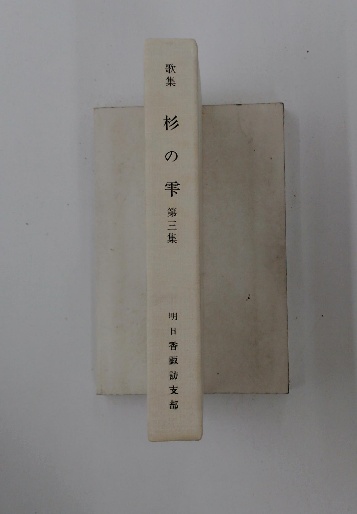 歌集
杉の雫
第三集
明日香諏訪支部